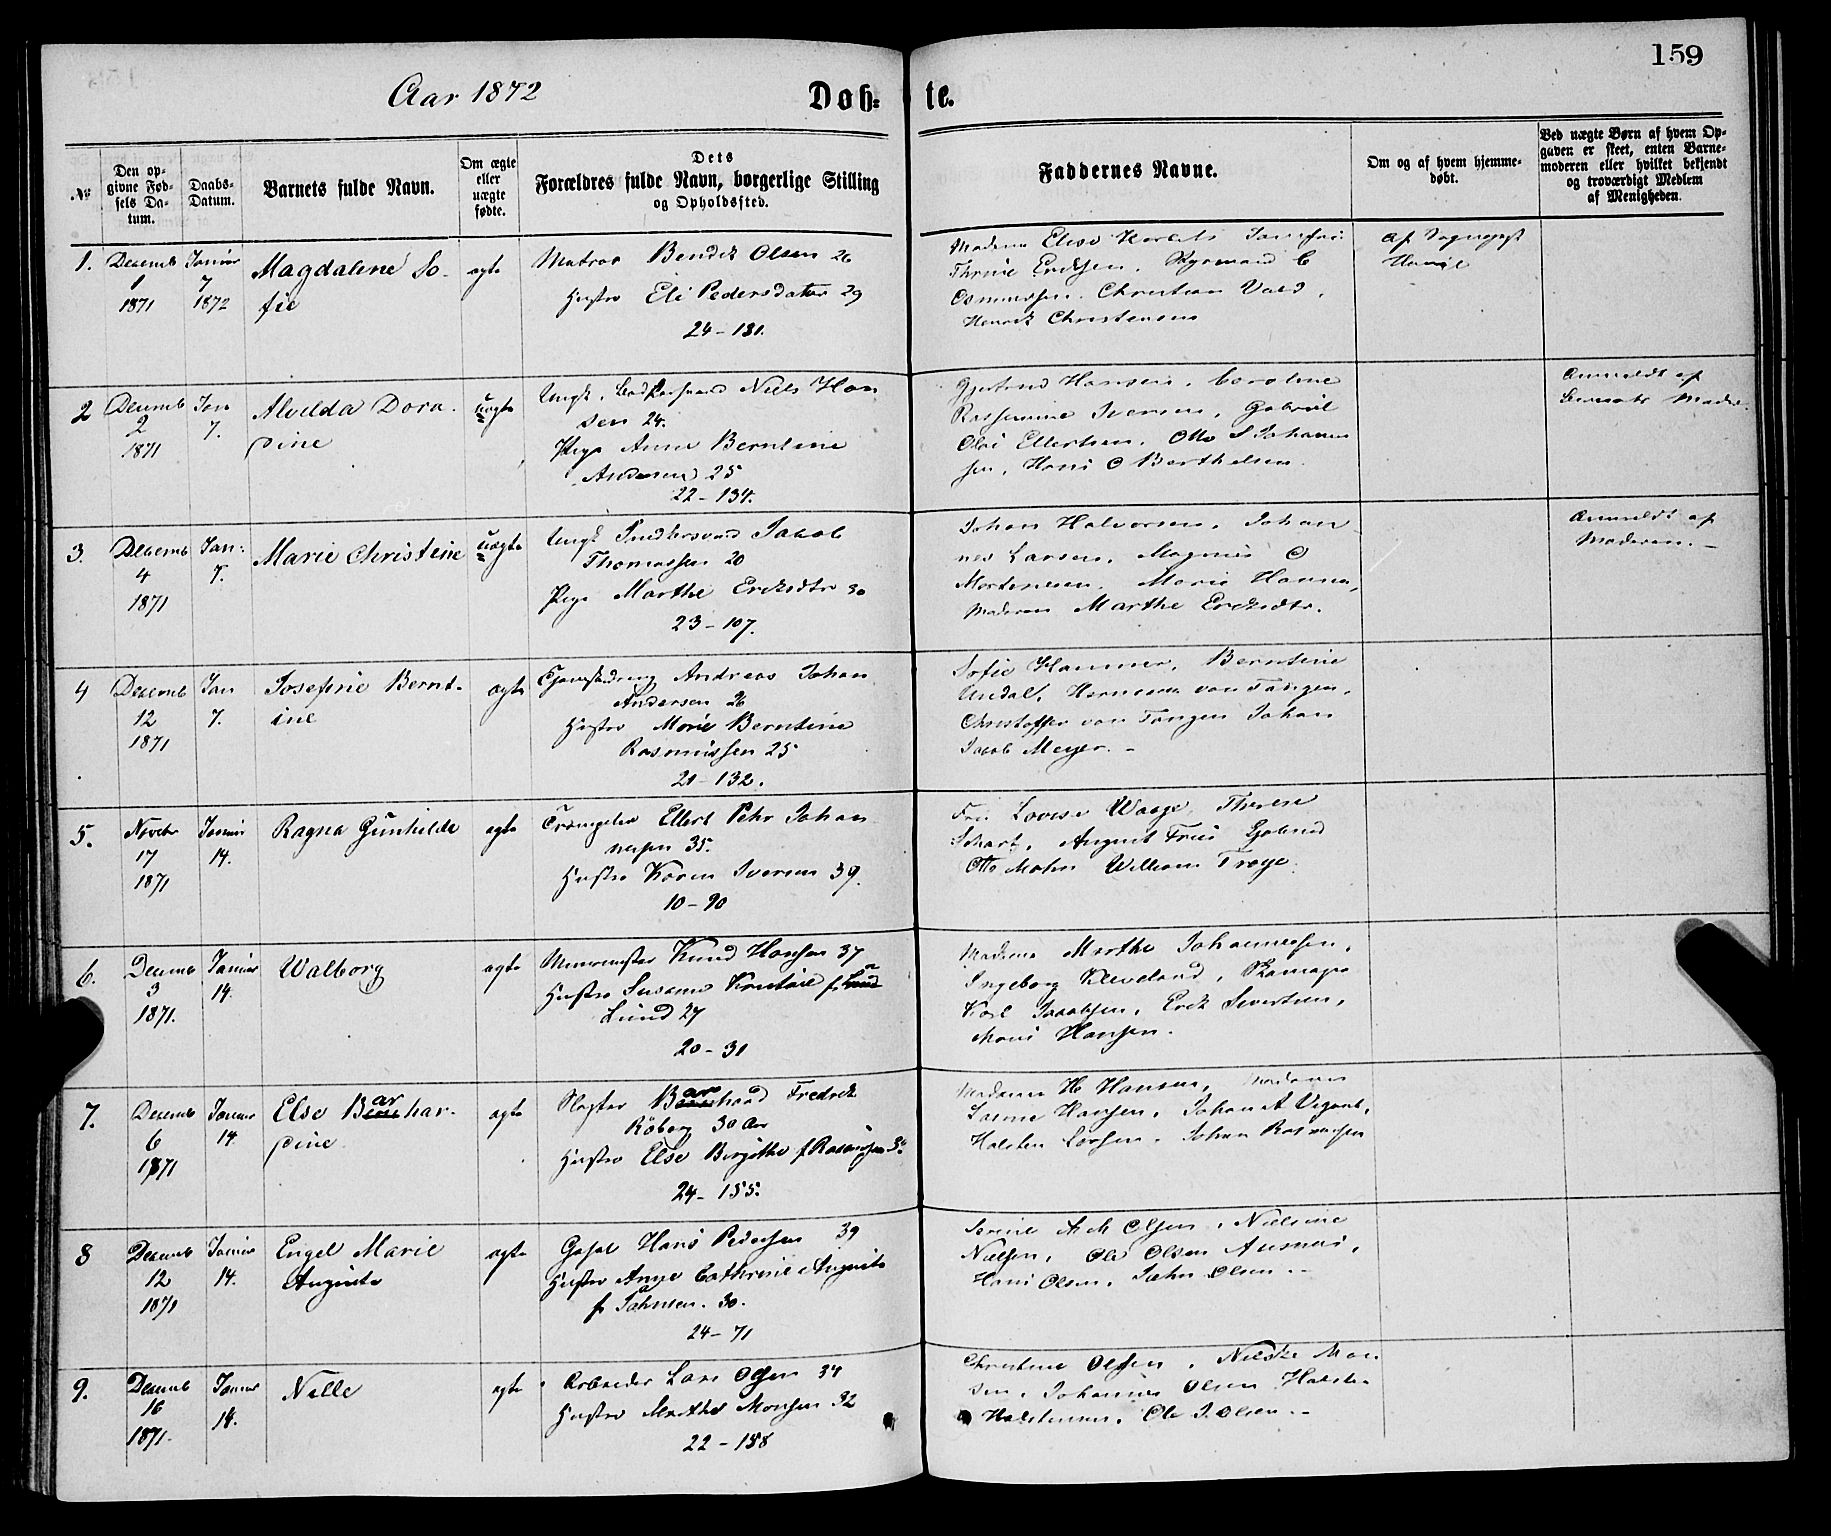 159
Aar 1872
Døb-te.
No
Den opgivne Fødsels Datum.
Daabs-Datum.
Barnets fulde Navn.
Om ægte eller uægte fødte.
Dets Forældres fulde Navn, borgerlige Stilling og Opholdssted.
Faddernes Navne.
Om og af hvem hjemmedøbt.
Ved uægte Børn af hvem Opgaven er skeet, enten Barnemoderen eller hvilket bekjendt og troværdigt Medlem af Menigheden.
1. Decemb 1 1871
Januar 7 1872
Magdalene Sofie
ægte
Matros Bendik Olsen 26
Hustro Eli Pedersdatter 29
24-131.
Madame Elise
Thrine Ericksen. Styrmand C
Christian
Henrik Christensen
af
2 Decemb 2 1871
Jan 7.
Alvelda Dorapine
uægte
Ungk. Niels Hansen 24.
Pige Anne Berntine
Andersen 25
22-134.
Gjertrud Hansen. Caroline
Iversen, Gabriel
Ellertsen. Otto S Johannessen, Hans C Berthelsen.
Anmeldt af
3. Decemb 4 1871
Jan: 7.
Marie Christine
uægte
Ungk Snedkersvend Jakob
Thomassen 20
Pige Marthe Ericksdtr 30
23-107.
Johan Halvorsen. Johannes Larsen, Magnus C
Mortensen. Marie Hansen,
Moderen Marthe Ericksdtr.
Anmeldt af
Moderen.-
4 Decemb 12 1871
Jan 7.
Josefine Berntine
ægte
Andreas Johan
Andersen 26
Hustro Marie Berntine
Rasmussen 25
21-132.
Sofie Hammer. Berntine
Undal, Herman von Tangen,
Christoffer von Tangen Johan
Jacob Meyer.-
5. Novebr 17 1871
Januar 14.
Ragna Gunhilde
ægte
Ellert Pehr Johannesen 35.
Hustro Karen Iversen 39.
10-90
Lovise Waage Therese
Scharf, August Friis
Otto Mohn William Troye.
6. Decemb 3 1871.
Januar 14.
Walborg
ægte
Muurmester Knud Hansen 37
Hustro Susanne Kristine f.
Lund 27
20-31
Madame Marthe Johannessen,
Ingeborg Kleveland,
Karl Jacobsen, Erik Sivertsen,
Hansen.
7. Decemb 6 1871
Januar 14
Else Barnharpine
ægte
Slagter Barnhard Fredrik
Roberg 30 Aar
Hustro Else Birgithe f Rasmussen
24-155.
Madame H. Hansen, Madame
Hansen, Johan A
Halsten Larsen. Johan Rasmussen
8 Decemb 12 1871
Januar 14.
Engel Marie
Auguste
ægte
Hans Pedersen 39
Hustro Anne Cathrine Auguste
f Johnsen. 30.
24-71
A M Olsen, Nielsine
Nielsen, Ole Olsen
Hans Olsen, John Olsen.-
9. Decemb 16 1871.
Januar 14.
Nille
ægte
Arbeider Lars Olsen 34
Hustro Marthe Monsen 32
22-158
Christine Olsen, Nilske Monsen. Johannes Olsen Halsten
Halstensen, Ole J. Olsen.-